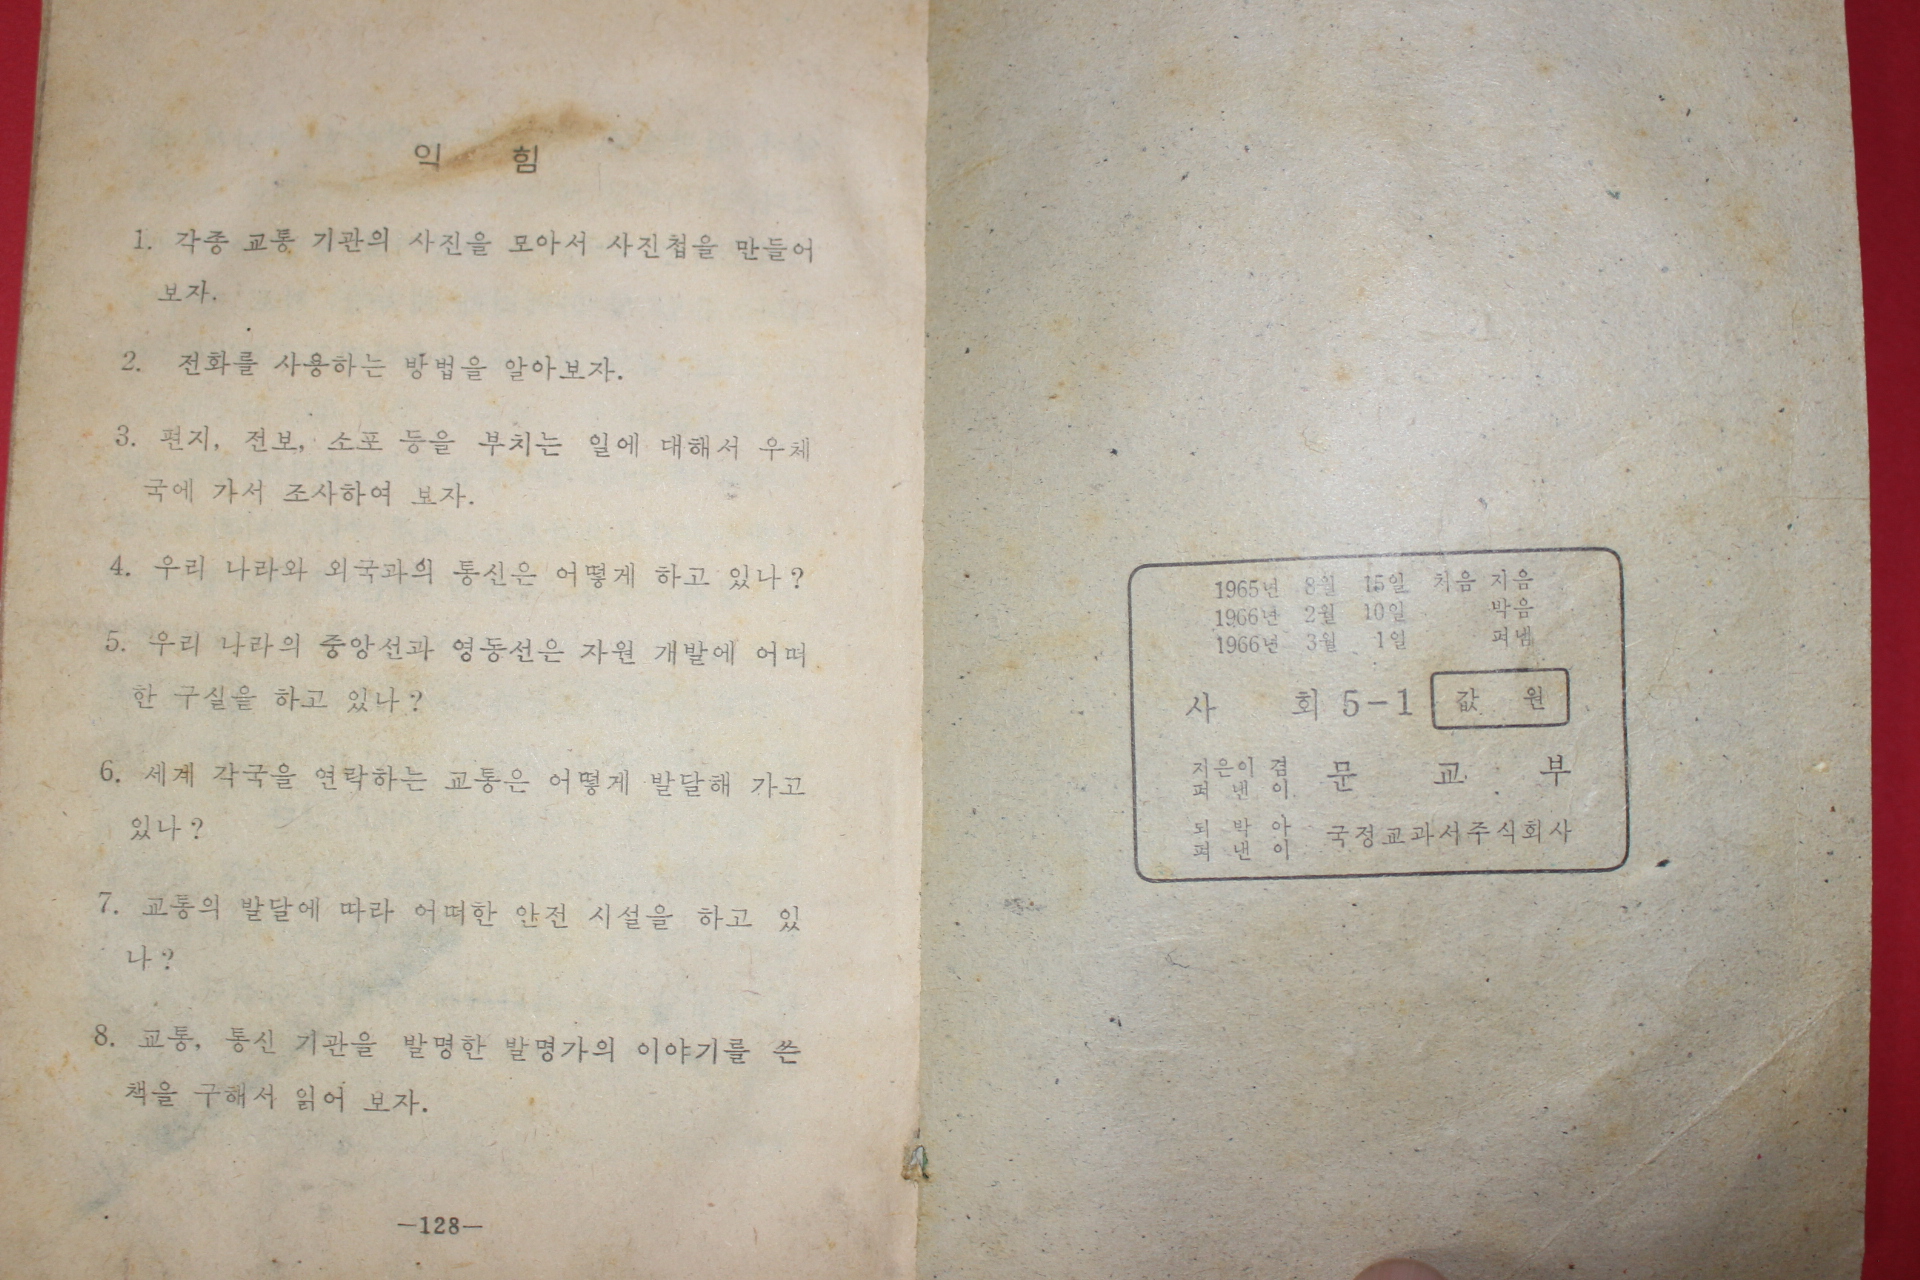 익 힘
1. 각종 교통 기관의 사진을 모아서 사진첩을 만들어
보자.
2. 전화를 사용하는 방법을 알아보자.
3. 편지, 전보, 소포 등을 부치는 일에 대해서 우체
국에 가서 조사하여 보자.
4. 우리 나라와 외국과의 통신은 어떻게 하고 있나?
5. 우리 나라의 중앙선과 영동선은 자원 개발에 어떠
한 구실을 하고 있나?
6. 세계 각국을 연락하는 교통은 어떻게 발달해 가고
있나?
7. 교통의 발달에 따라 어떠한 안전 시설을 하고 있
나?
8. 교통, 통신 기관을 발명한 발명가의 이야기를 쓴
책을 구해서 읽어 보자.
—128—
1965년 8월 15일 처음 지음
1966년 2월 10일 박음
1966년 3월 1일 펴냄
사 회 5-1 값 원
지은이 겸
펴 낸 이 문 교 부
되 박 아
펴 낸 이 국정교과서주식회사